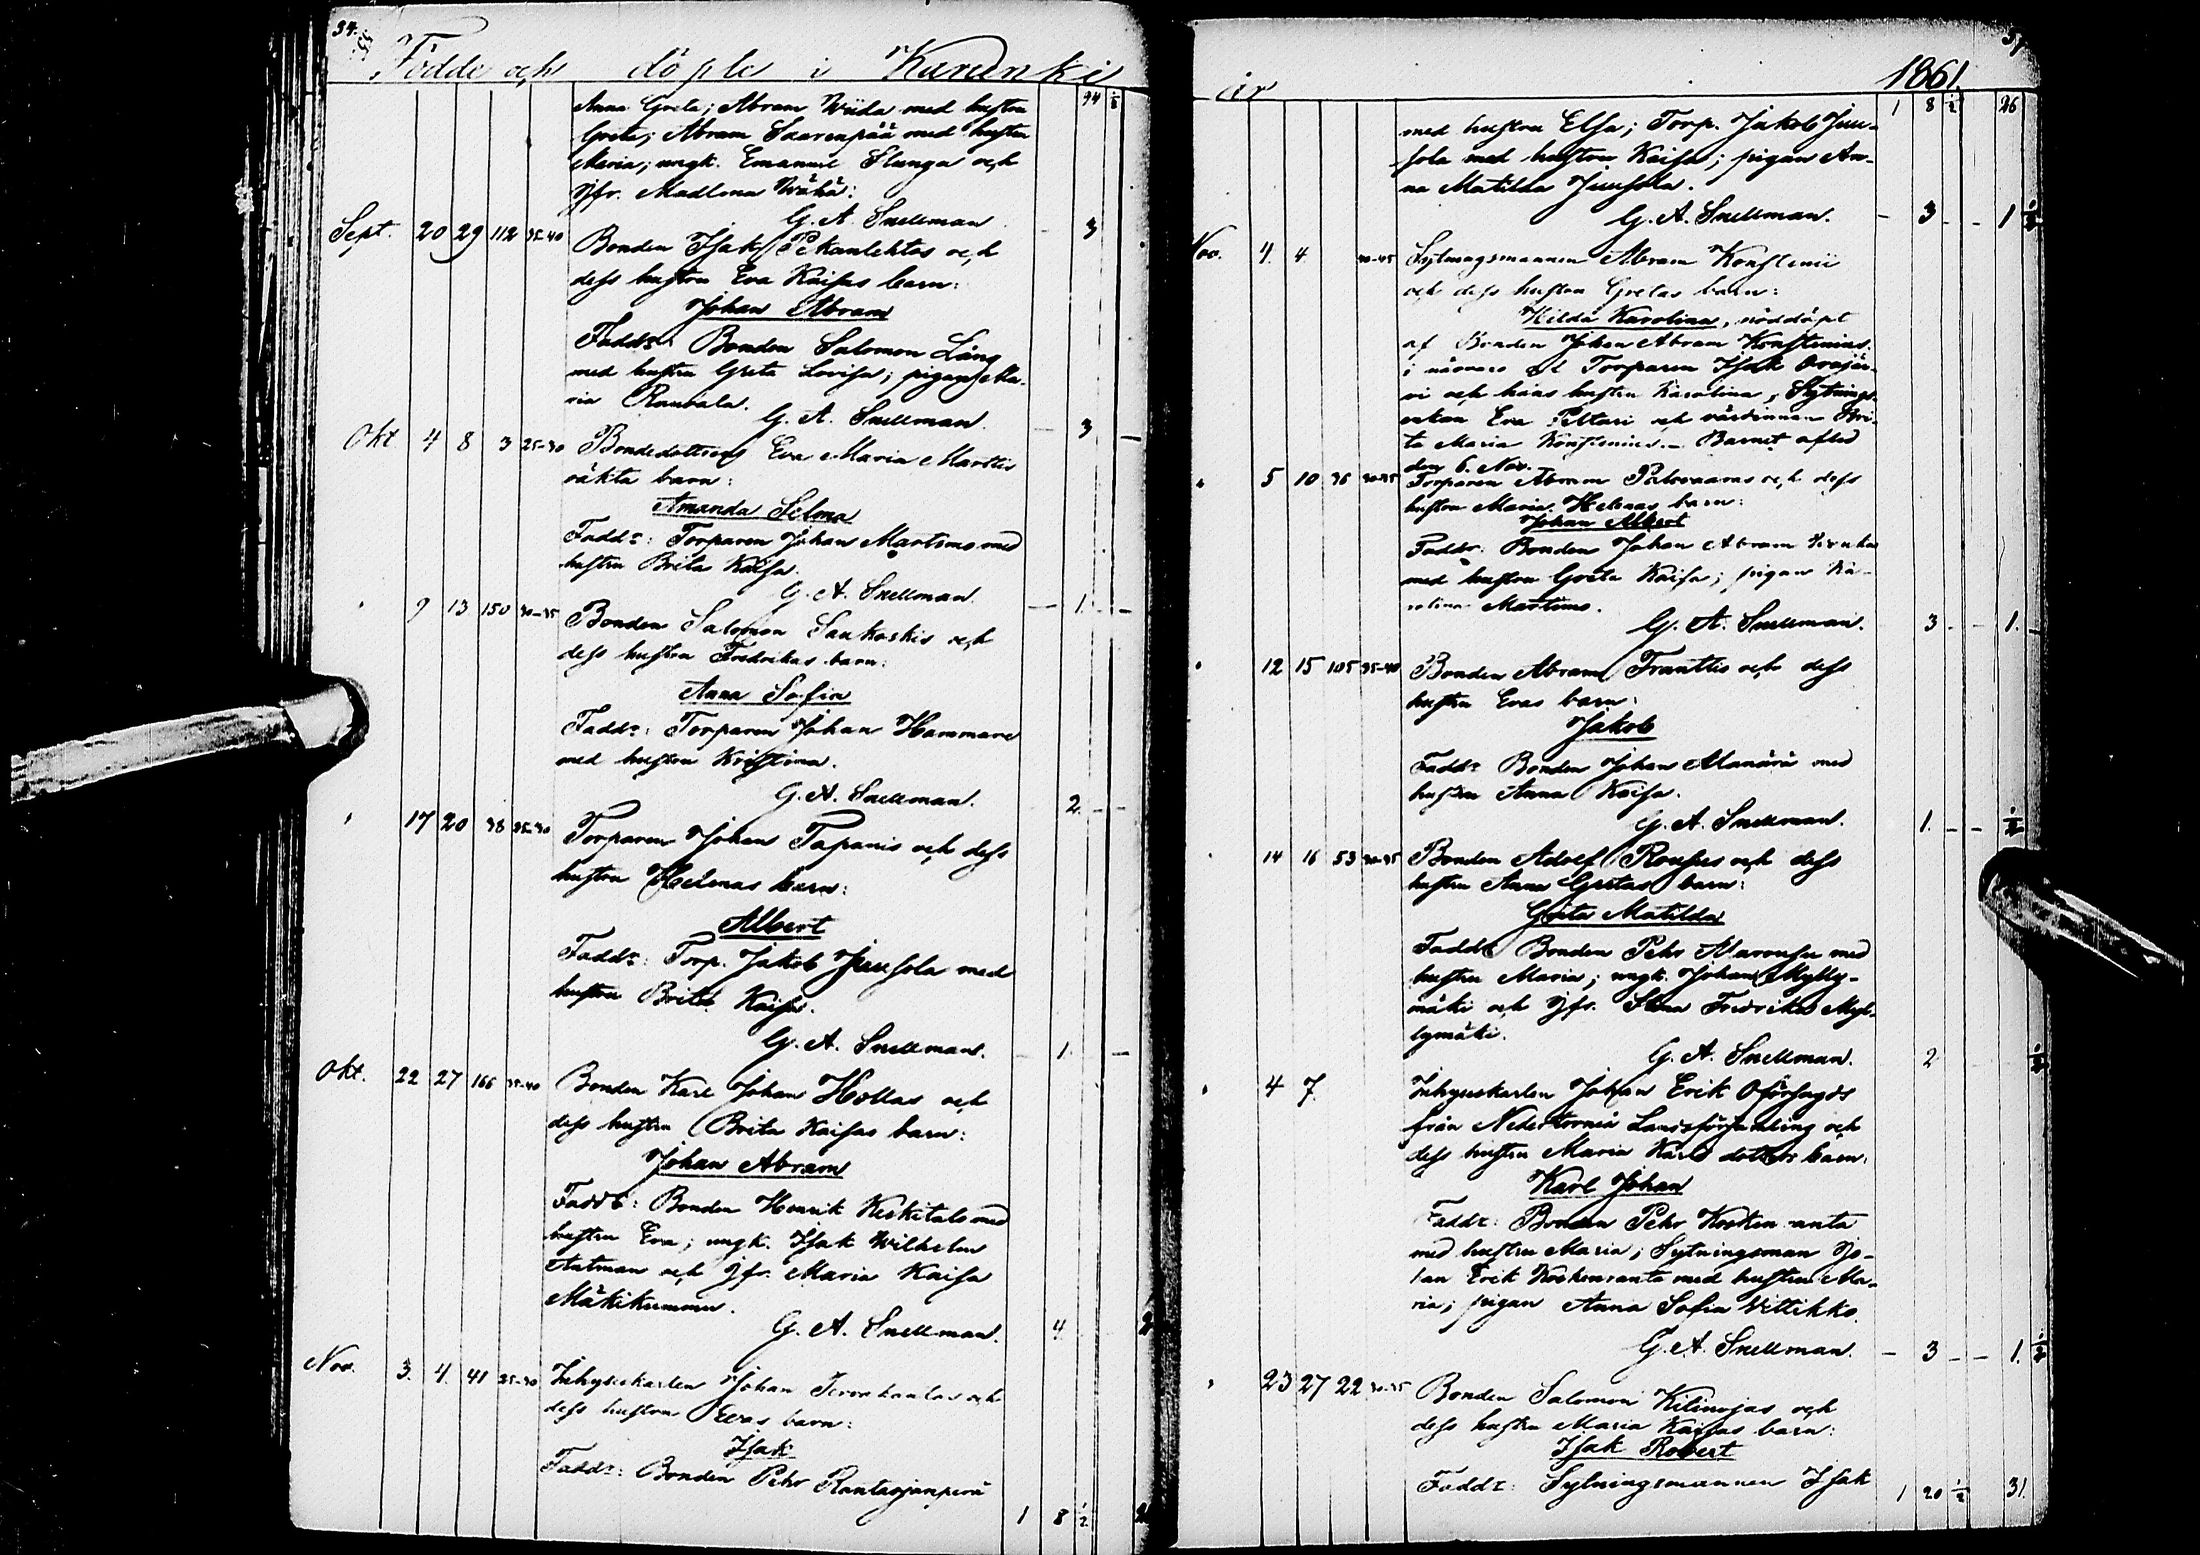 34.
Födde och döpte i Karunki
94 1/2
Anna Greta; Abram Wiida med hustru
Greta; Abram Saarenpää med hustru
Maria; ungk. Emanuel Slunga och
Jfr. Madlena Wähä:
G. A. Snellman 3
Sept. 20 29 112 35-40 Bonden Isak Pekanlehtos och
dess hustru Eva Kaisas barn:
Johan Abram
Faddr: Bonden Salomon Lång
med hustru Greta Lovisa; pigan Ma-
ria Rautala.
G. A. Snellman. 3
Okt 4 8 3 25-30 Bondedottren Eva Maria Marttis
oäkta barn:
Amanda Selma
Faddr: Torparen Johan Martimo med
hustru Brita Kaisa.
G. A. Snellman. 1
" 9 13 150 30-35 Bonden Salomon Saukoskis och
dess hustru Fredrikas barn:
Anna Sofia
Faddr: Torparen Johan Hammare
med hustru Kristina.
G. A. Snellman. 2
" 17 20 38 25-30 Torparen Johan Tapanis och dess
hustru Helenas barn:
Albert
Faddr: Torp. Jakob Juusola med
hustru Brita Kaisa.
G. A. Snellman. 1
Okt. 22 27 166 35-40 Bonden Karl Johan Hollas och
dess hustru Brita Kaisas barn:
Johan Abram
Faddr: Bonden Henrik Keskitalo med
hustru Eva; ungk. Isak Wilhelm
Autman och Jfr. Maria Kaisa
Mäkikummu.
G. A. Snellman. 4
Nov. 3. 4. 41 25-30 Inhysekarlen Johan Tervahautas och
dess hustru Evas barn:
Isak
Faddr: Bonden Pehr Rantaojanperä
1 8 1/2
år 1861.
1 8 1/2 26
med hustru Elsa; Torp. Jakob Juu-
sola med hustru Kaisa; pigan An-
na Matilda Juusola.
G. A. Snellman. - 3 - - 1 1/2
Nov. 4. 4 40-45 Sytningsmannen Abram Konstenii
och dess hustru Gretas barn:
Hilda Karolina, nöddöpt
af Bonden Johan Abram Konstenius
i närvaro af Torparen Isak Orajär-
vi och hans hustru Karolina, Sytnings-
enkan Eva Peltari och värdinnan Bri-
ta Maria Konstenius. - Barnet afled
den 6. Nov.
" 5 10 36 30-35 Torparen Abram Palovaaras och dess
hustru Maria Helenas barn:
Johan Albert
Faddr: Bonden Johan Abram
med hustru Greta Kaisa; pigan Ka-
rolina Martimo.
G. A. Snellman. 3 - - 1.
" 12 15 105 35-40 Bonden Abram Franttis och dess
hustru Evas barn:
Jakob
Faddr: Bonden Johan Alamäärä med
hustru Anna Kaisa.
G. A. Snellman. 1. - - 1/2
" 14 16 53 30-35 Bonden Adolf Roupes och dess
hustru Anna Gretas barn:
Greta Matilda
Faddr: Bonden Pehr Marousu med
hustru Maria; ungk. Johan Mylly-
mäki och Jfr. Stina Fredrika Myl-
lymäki.
G. A. Snellman. 2 1/2
" 4 7. Inhysekarlen Johan Erik Oförsagds
från Nedertorneå Landsförsamling och
dess hustru Maria Karls dotters barn:
Karl Johan
Faddr: Bonden Pehr Koskenranta
med hustru Maria; Sytningsman Jo-
han Erik Koskenranta med hustru Ma-
ria; pigan Anna Sofia Vittikko.
G. A. Snellman. - 3 - - 1. 1/2
" 23 27 22 30-35 Bonden Salomon Kilinojas och
dess hustru Maria Kaisas barn:
Isak Robert
Faddr: Sytningsmannen Isak
1 20 1/2 31.